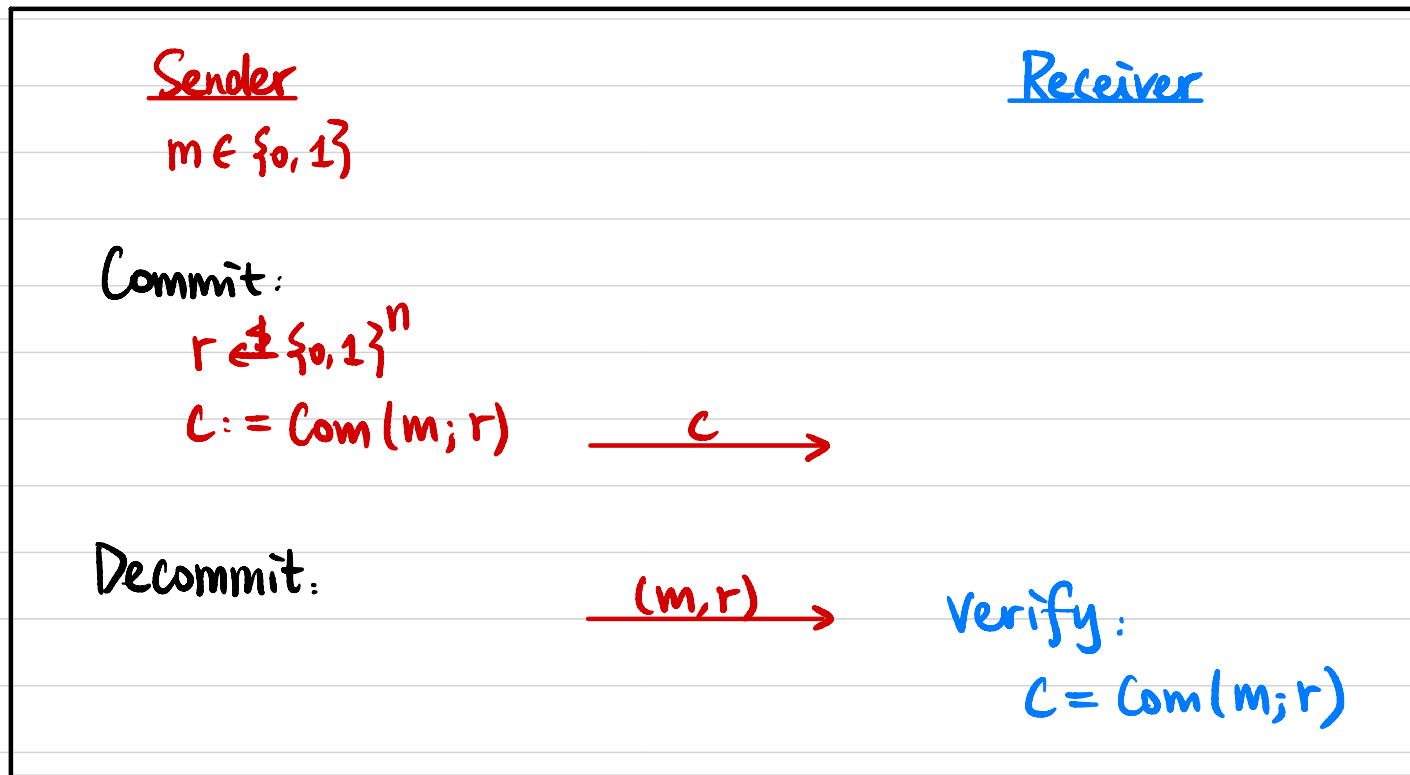 Sender
Receiver
m ∈ {0,1}
Commit:
r ←$ {0,1}ⁿ
C := Com(m; r)
c
Decommit:
(m,r)
Verify:
C = Com(m; r)